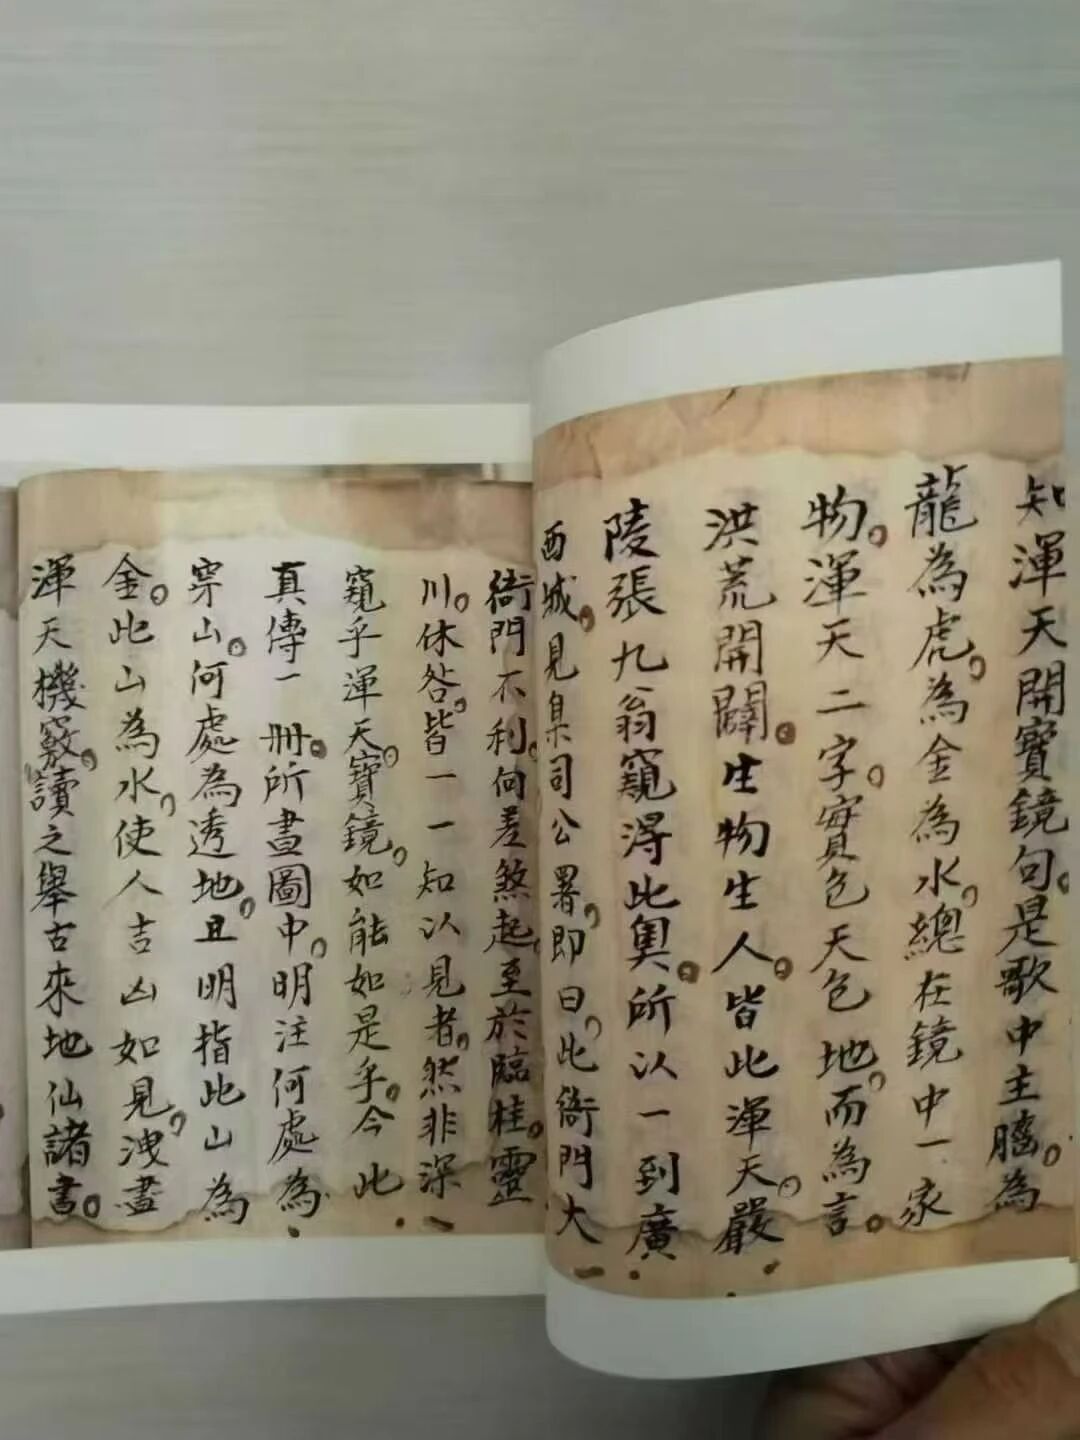 知渾天開寶鏡句。是歌中主腦。為
龍為虎。為金為水。總在鏡中一家
物。渾天二字。實包天包地。而為言。
洪荒開闢。生物生人。皆此渾天。嚴
陵張九翁窺得此奧。所以一到廣
西城。見臬司公署。即曰。此衙門大
衙門不利。何差煞起。至於臨桂。靈
川。休咎。皆一一知以見者。然非深
窺乎渾天。寶鏡。如能如是乎。今此
真傳一冊。所畫圖中。明注何處為
穿山。何處為透地。且明指此山為
金。此山為水。使人吉凶如見。洩盡
渾天機竅。讀之舉古來地仙諸書。